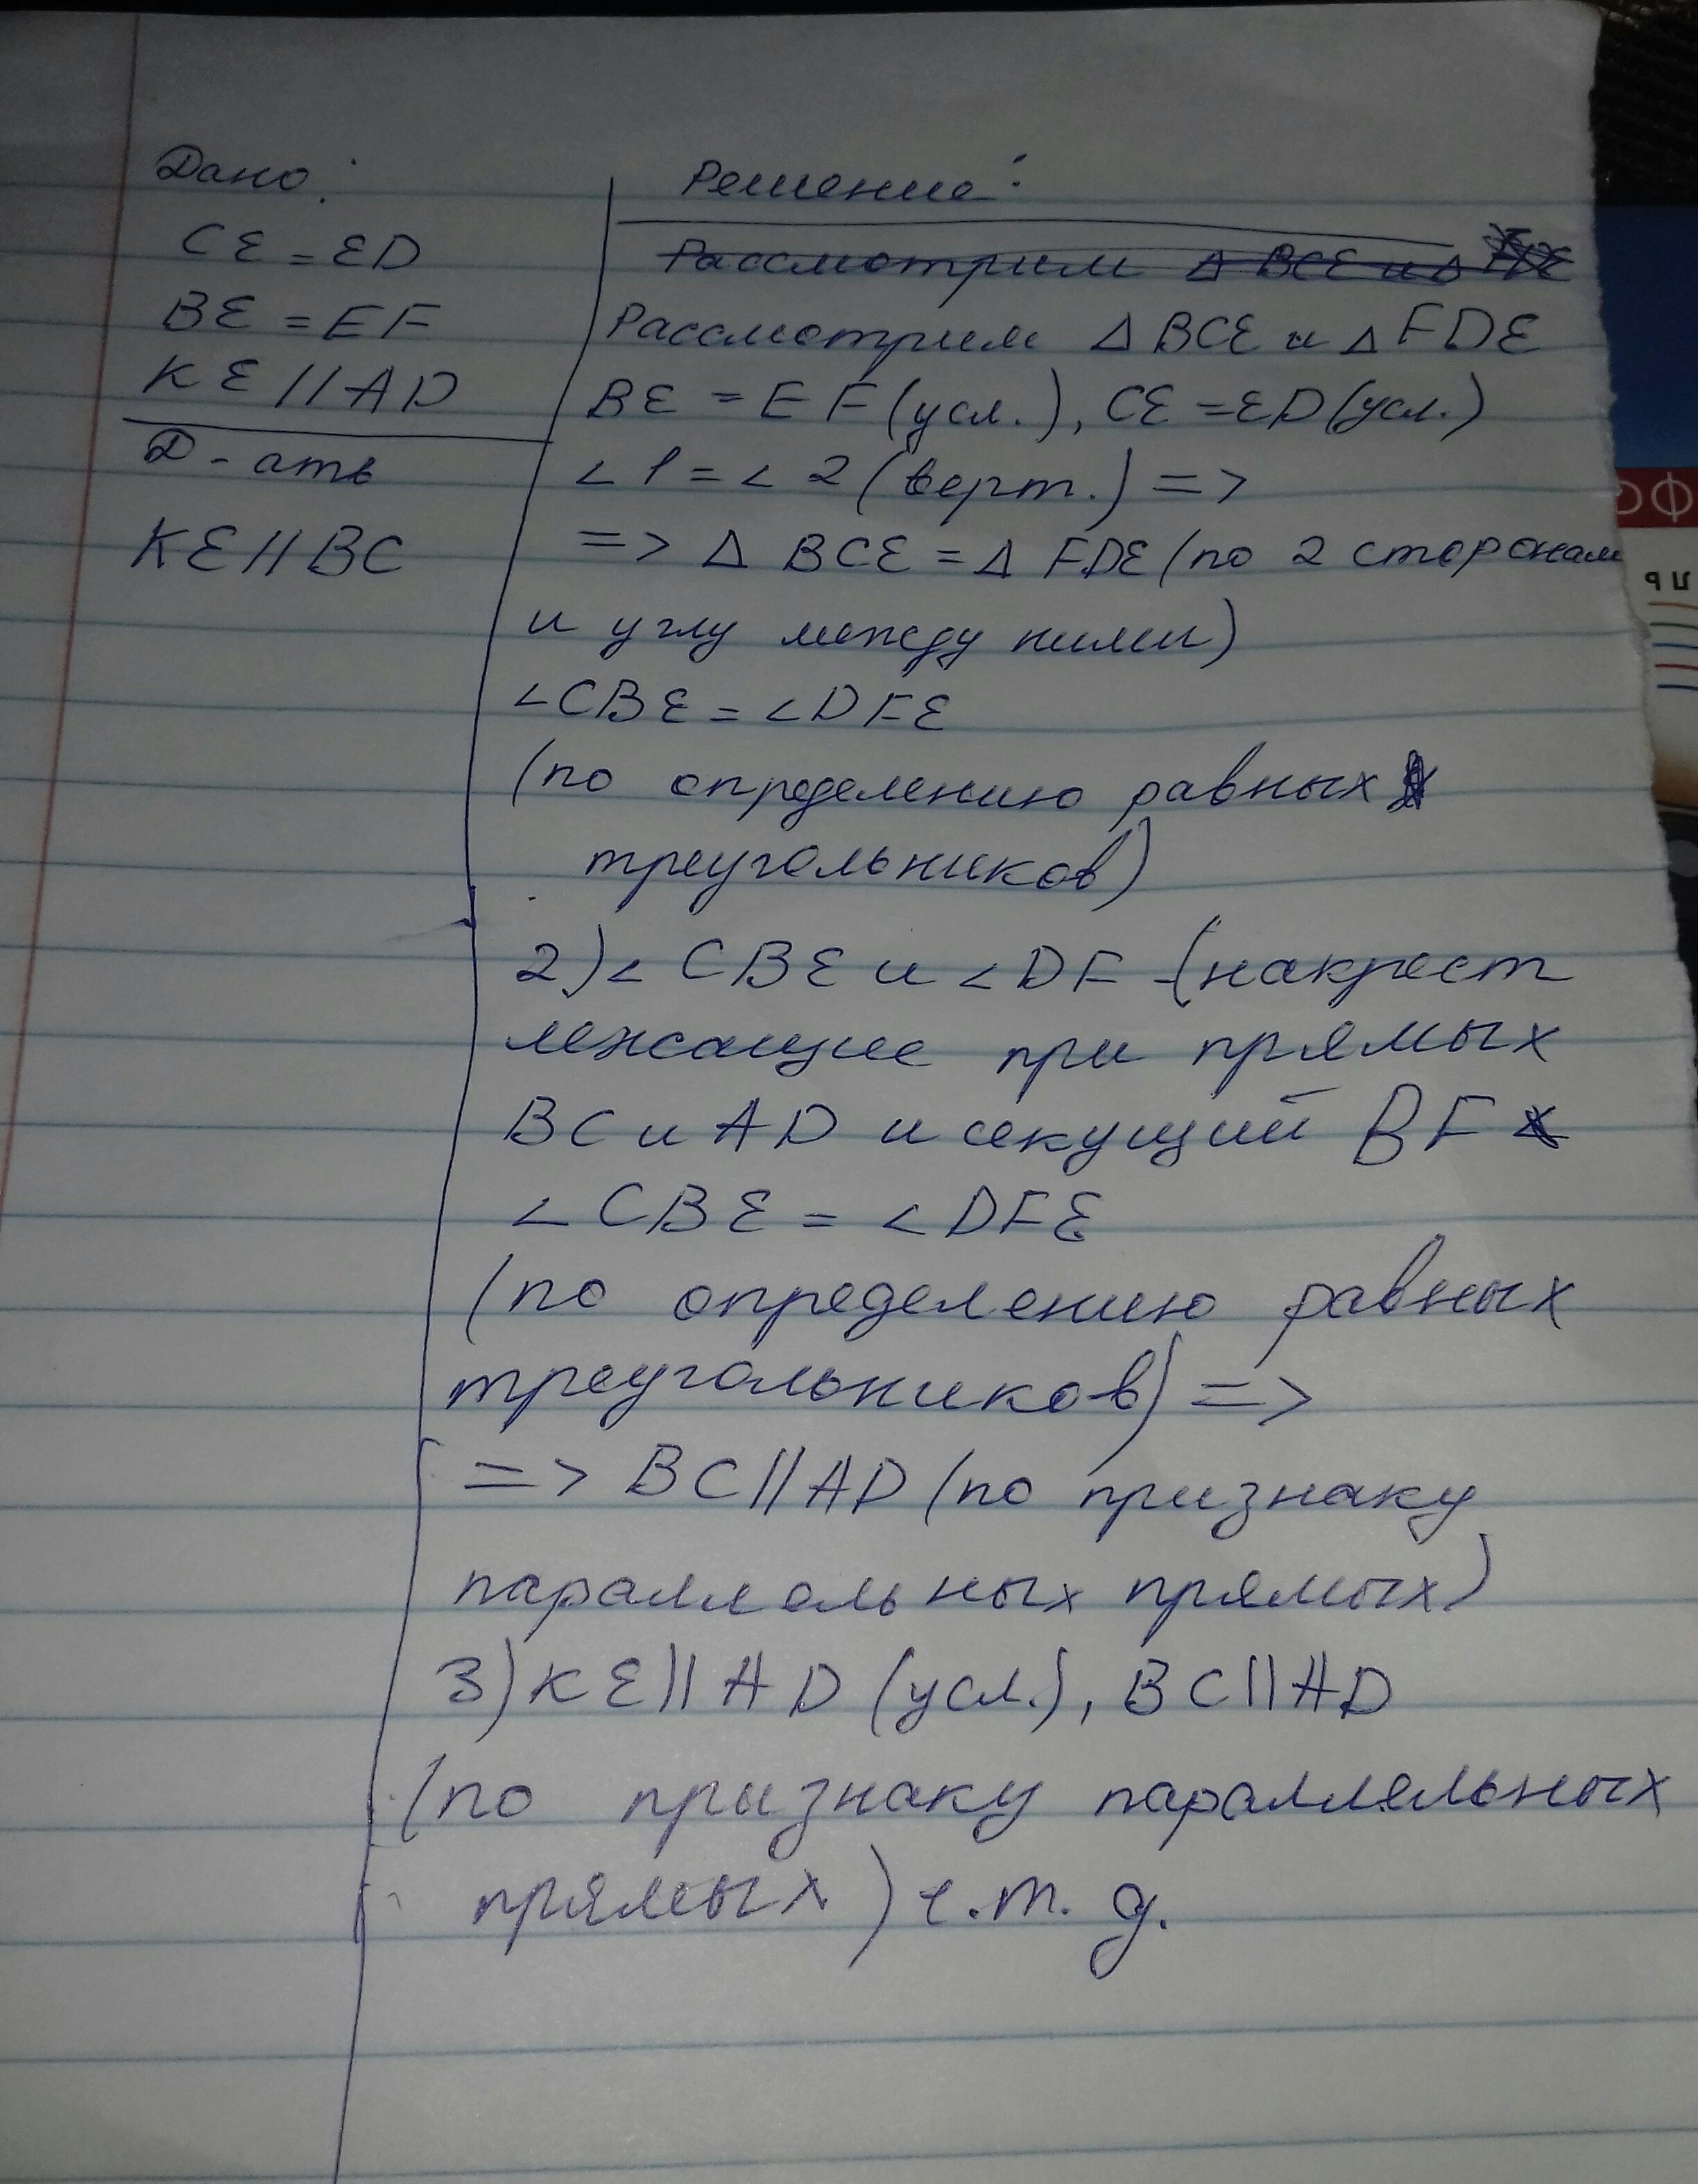 Дано:
CE = ED
BE = EF
KE || AD
Д-ать
KE || BC
Решение:
Рассмотрим △ BCE и △
Рассмотрим △ BCE и △ FDE
BE = EF (усл.), CE = ED (усл.)
∠1 = ∠2 (верт.) =>
=> △ BCE = △ FDE (по 2 сторонам
и углу между ними)
∠CBE = ∠DFE
(по определению равных
треугольников)
2) ∠ CBE и ∠DF - (накрест
лежащие при прямых
BC и AD и секущий BF
∠ CBE = ∠ DFE
(по определению равных
треугольников) =>
=> BC || AD (по признаку
параллельных прямых)
3) KE || AD (усл.), BC || AD
(по признаку параллельных
прямых) ч.т.д.